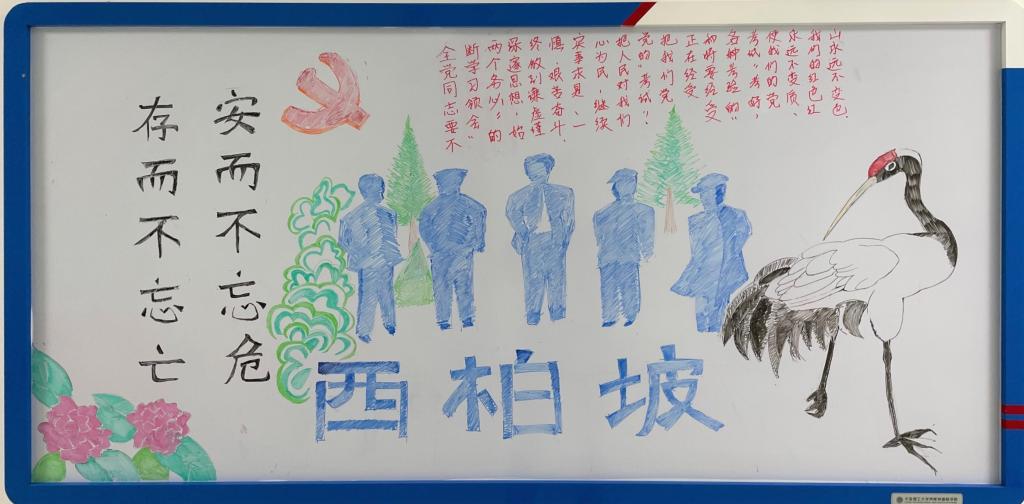 安而不忘危
存而不忘亡
全党同志要不
断学习领会“
两个务必”的
深邃思想，始
终做到谦虚谨
慎、艰苦奋斗、
实事求是、一
心为民，继续
把人民对我们
党的“考试”、
把我们党
正在经受
和将要经受
各种考验的“
考试”考好，
使我们的党
永远不变质、
我们的红色江
山永远不变色。
西柏坡